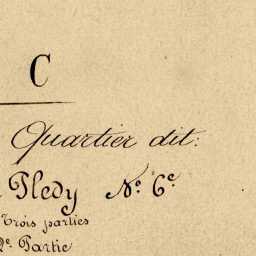 C
Quartier dit:
Pledy No. 6e.
Trois parties
2e. Partie